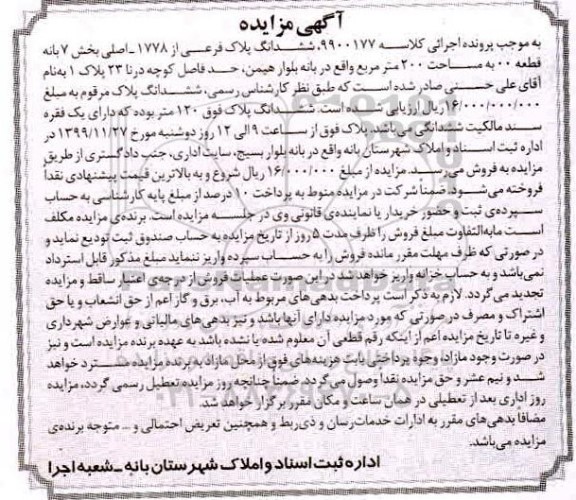 آگهی مزایده
به موجب پرونده اجرائی کلاسه ۹۹۰۰۱۷۷، ششدانگ پلاک فرعی از ۱۷۷۸ ـ اصلی بخش ۷ بانه
قطعه ۰۰ به مساحت ۲۰۰ متر مربع واقع در بانه بلوار هیمن، حد فاصل کوچه درنا ۲۳ پلاک ۱ به‌نام
آقای علی حسنی صادر شده است که طبق نظر کارشناس رسمی، ششدانگ پلاک مرقوم به مبلغ
۱۶/۰۰۰/۰۰۰/۰۰۰ ریال ارزیابی شده است. ششدانگ پلاک فوق ۱۲۰ متر بوده که دارای یک فقره
سند مالکیت ششدانگی می‌باشد. پلاک فوق از ساعت ۹ الی ۱۲ روز دوشنبه مورخ ۱۳۹۹/۱۱/۲۷ در
اداره ثبت اسناد و املاک شهرستان بانه واقع در بانه بلوار بسیج، سایت اداری، جنب دادگستری از طریق
مزایده به فروش می‌رسد. مزایده از مبلغ ۱۶/۰۰۰/۰۰۰ ریال شروع و به بالاترین قیمت پیشنهادی نقداً
فروخته می‌شود. ضمناً شرکت در مزایده منوط به پرداخت ۱۰ درصد از مبلغ پایه کارشناسی به حساب
سپرده‌ی ثبت و حضور خریدار یا نماینده‌ی قانونی وی در جلسه مزایده است. برنده‌ی مزایده مکلف
است مابه‌التفاوت مبلغ فروش را ظرف مدت ۵ روز از تاریخ مزایده به حساب صندوق ثبت تودیع نماید و
در صورتی که ظرف مهلت مقرر مانده فروش را به حساب سپرده واریز ننماید مبلغ مذکور قابل استرداد
نمی‌باشد و به حساب خزانه واریز خواهد شد در این صورت عملیات فروش از درجه‌ی اعتبار ساقط و مزایده
تجدید می‌گردد. لازم به ذکر است پرداخت بدهی‌های مربوط به آب، برق و گاز اعم از حق انشعاب و یا حق
اشتراک و مصرف در صورتی که مورد مزایده دارای آنها باشد و نیز بدهی‌های مالیاتی و عوارض شهرداری
و غیره تا تاریخ مزایده اعم از اینکه رقم قطعی آن معلوم شده یا نشده باشد به عهده برنده مزایده است و نیز
در صورت وجود مازاد، وجوه پرداختی بابت هزینه‌های فوق از محل مازاد به برنده مزایده مسترد خواهد
شد و نیم عشر و حق مزایده نقداً وصول می‌گردد. ضمناً چنانچه روز مزایده تعطیل رسمی گردد، مزایده
روز اداری بعد از تعطیلی در همان ساعت و مکان مقرر برگزار خواهد شد.
مضافاً بدهی‌های مقرر به ادارات خدمات‌رسان و ذی‌ربط و همچنین تعریض احتمالی و ـ متوجه برنده‌ی
مزایده می‌باشد.
اداره ثبت اسناد و املاک شهرستان بانه ـ شعبه اجرا